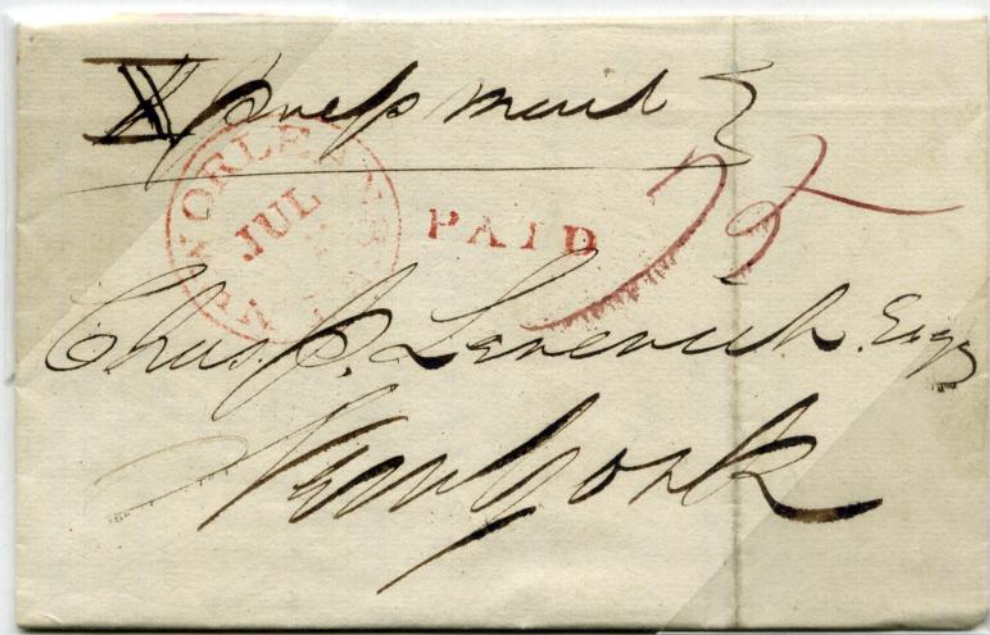 XPress mail
N ORLEANS
JUL
PAID
75
Chas. P. Leverich. Esq
New York